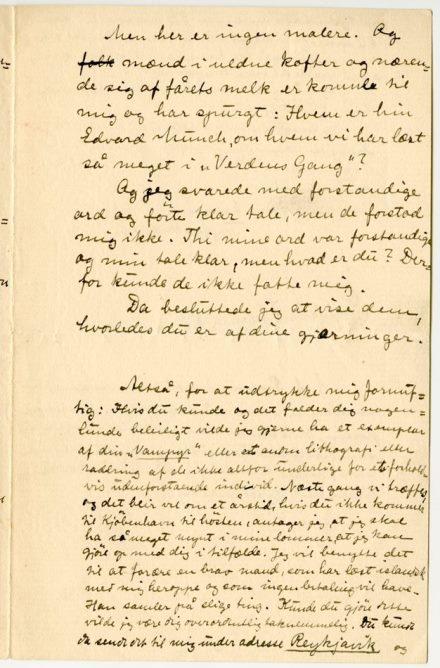 Men her er ingen malere. Og
folk mænd i uldne kofter og næren-
de sig af fårets melk er komne til
mig og har spurgt: Hvem er hin
Edvard Munch, om hvem vi har læst
så meget i „Verdens Gang"?
Og jeg svarede med forstandige
ord og førte klar tale, men de forstod
mig ikke. Thi mine ord var forstandige
og min tale klar, men hvad er du? Der-
for kunde de ikke fatte mig.
Da besluttede jeg at vise dem,
hvorledes du er af dine gjerninger.
Altså, for at udtrykke mig fornuf-
tig: Hvis du kunde og det falder dig nogen-
lunde beleiligt vilde jeg gjerne ha et exemplar
af din „Vampyr" eller en anden lithografi eller
radering af de ikke altfor underlige for et forholds-
vis udenforstaaende individ. Næste gang vi træffes
og det blir vel om et årstid, hvis du ikke kommer
til Kjöbenhavn til høsten, antager jeg at jeg skal
ha så meget mynt i mine lommer, at jeg kan
gjöre op med dig i tilfælde. Jeg vil benytte det
til at forære en brav mand, som har læst islandsk
med mig heroppe og som ingen betaling vil have.
Han samler på slige ting. Kunde du gjöre dette
vilde jeg være dig overordentlig taknemmelig. Du kunde
da sende det til mig under adresse Reykjavik og